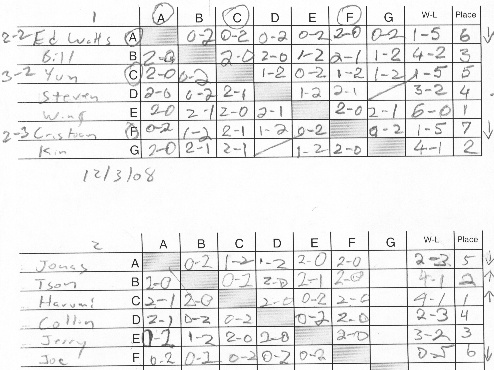 1 A B C D E F G W-L Place
2-2 Ed Watts A 0-2 0-2 0-2 0-2 2-0 0-2 1-5 6 ↓
Bill B 2-0 2-0 2-0 1-2 2-1 1-2 4-2 3
3-2 Yun C 2-0 0-2 1-2 0-2 1-2 1-2 1-5 5
Steven D 2-0 0-2 2-1 1-2 2-1 3-2 4
Wing E 2-0 2-1 2-0 2-1 2-0 2-1 6-0 1
2-3 Cristian F 0-2 1-2 2-1 1-2 0-2 0-2 1-5 7 ↓
Kin G 2-0 2-1 2-1 1-2 2-0 4-1 2
12/3/08
2 A B C D E F G W-L Place
Jonas A 0-2 1-2 1-2 2-0 2-0 2-3 5 ↓
Tson B 2-0 0-2 2-0 2-1 2-0 4-1 2 ↑
Harumi C 2-1 2-0 2-0 0-2 2-0 4-1 1 ↑
Collin D 2-1 0-2 0-2 0-2 2-0 2-3 4
Jerry E 0-2 1-2 2-0 2-0 2-0 3-2 3
Joe F 0-2 0-2 0-2 0-2 0-2 0-5 6 ↓